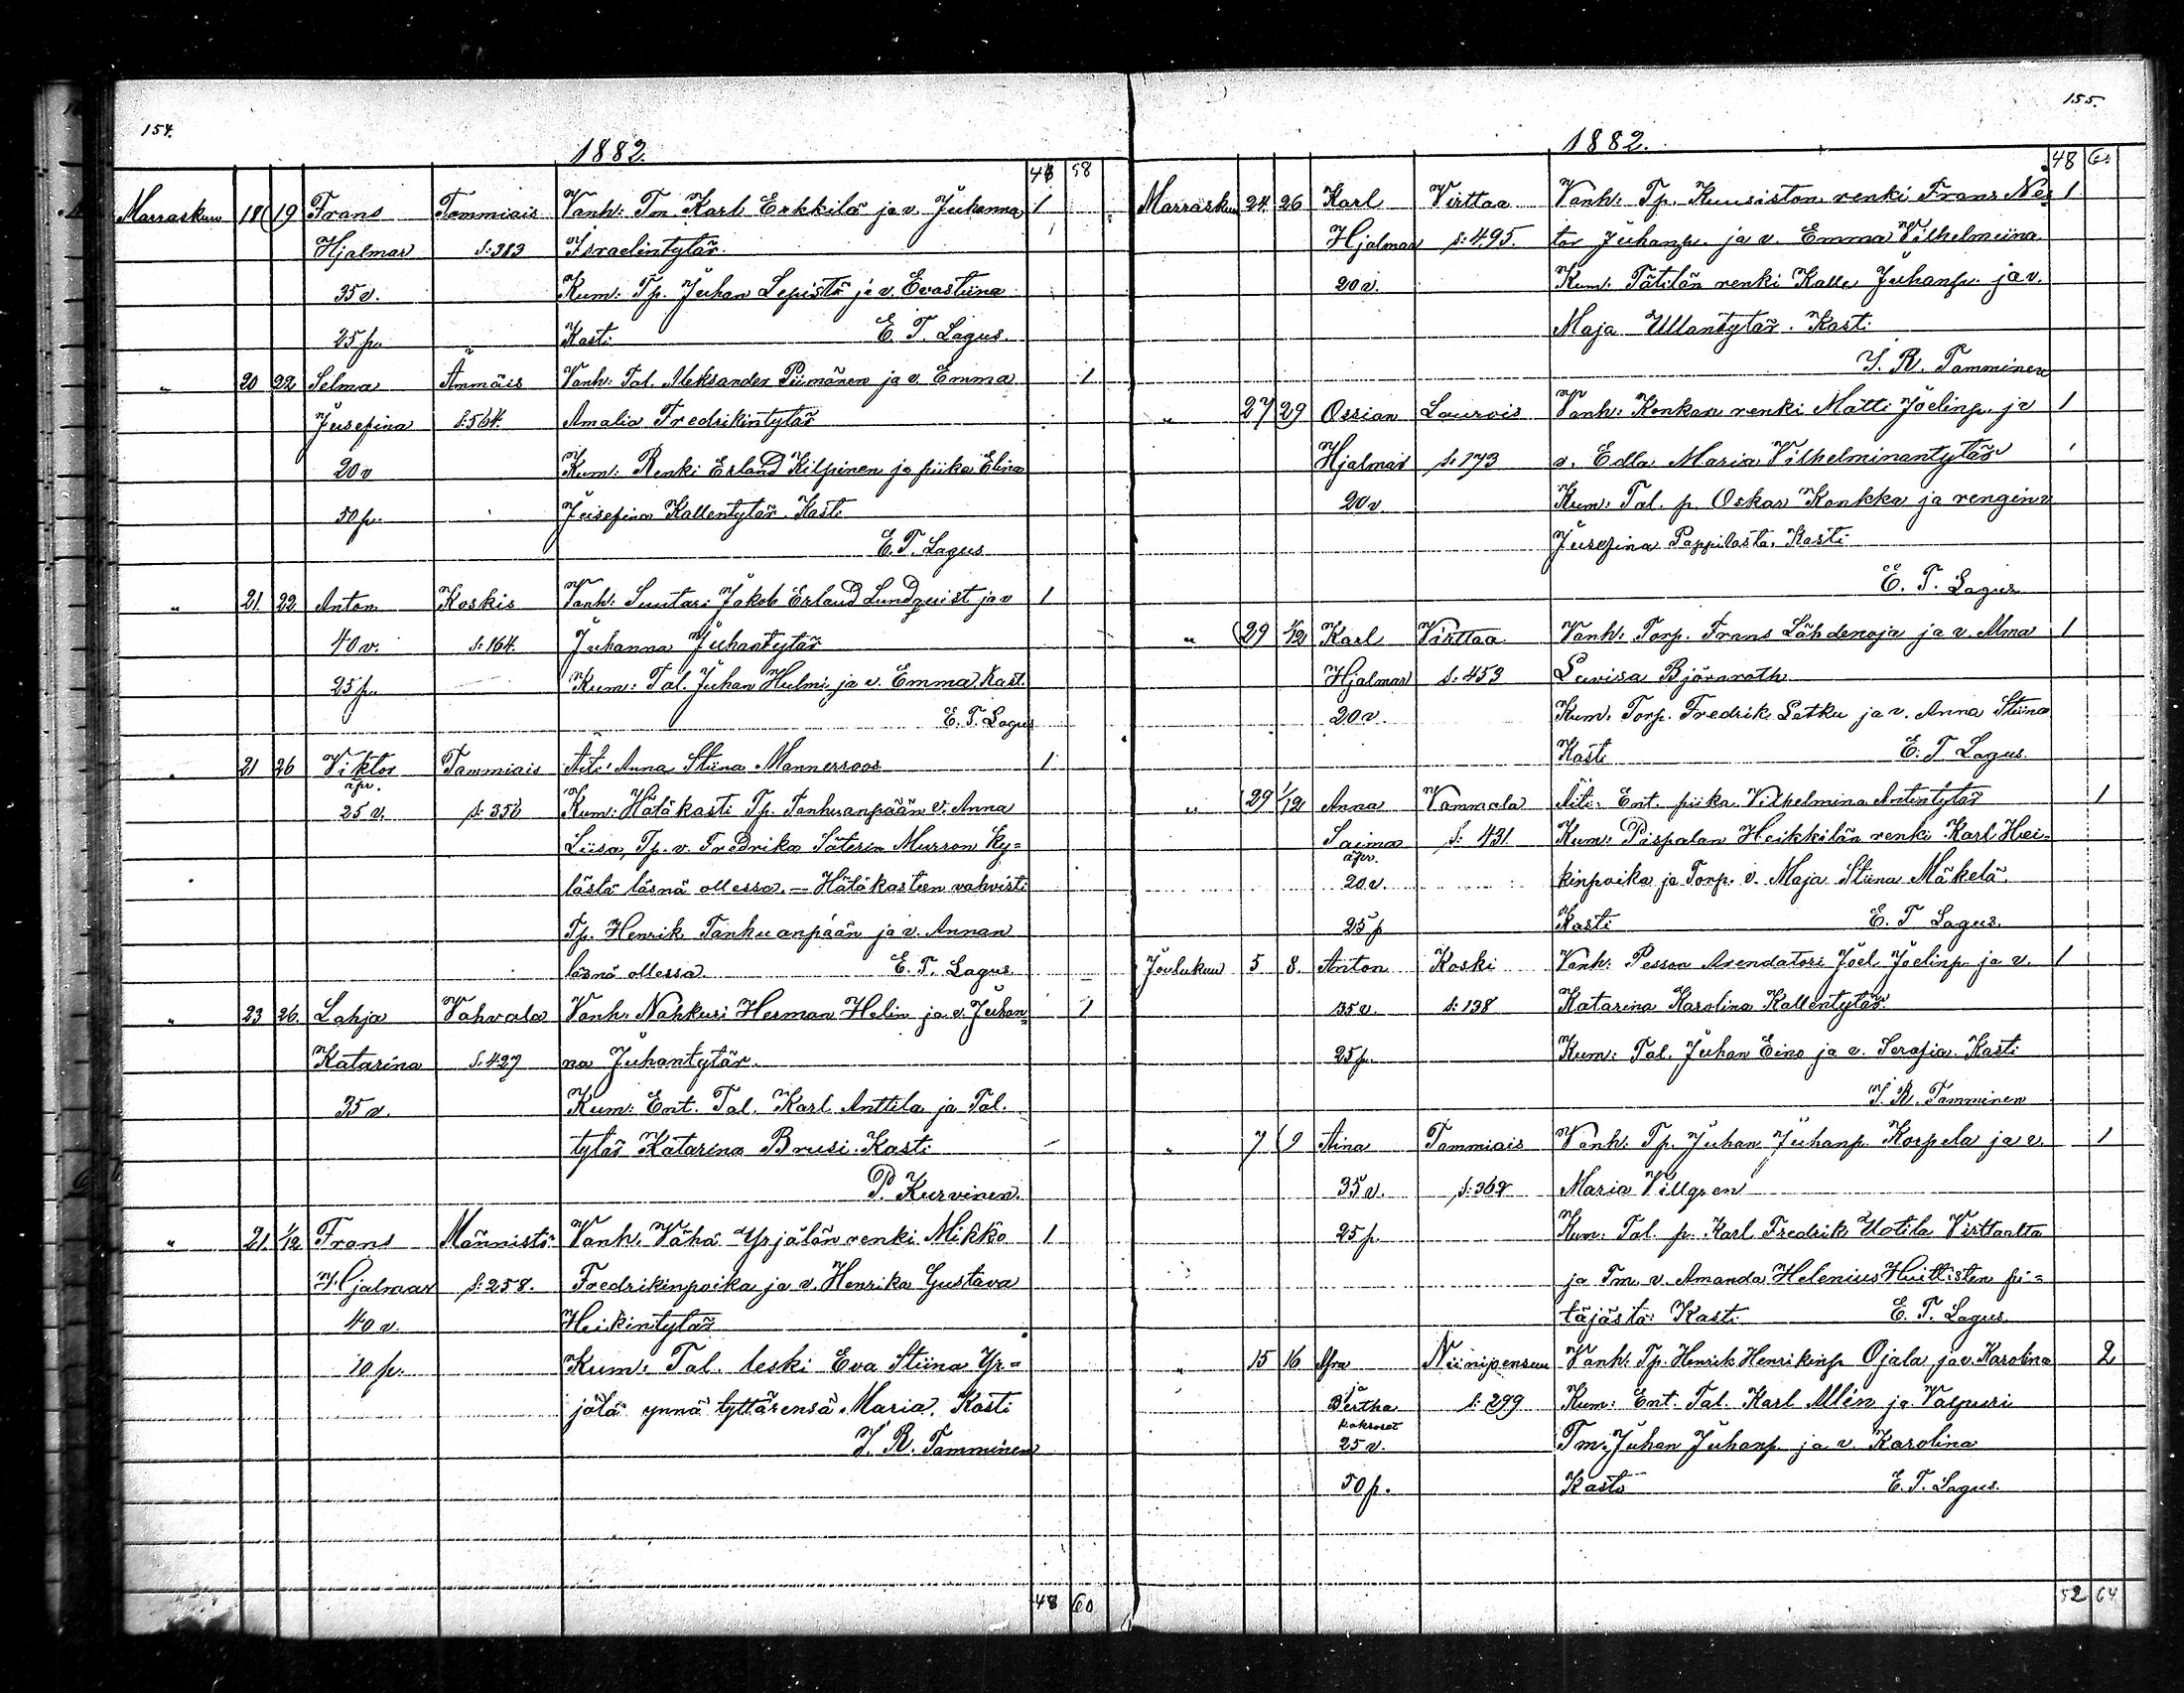 154.
1882.
48 58
Marraskuu 18 19 Frans Tammiais Vanh: Tm Karl Erkkilä ja v. Juhanna 1
Hjalmar s: 383 Israelintytär.
35 v. Kum: Tp. Juhan Lepistö ja v. Evastiina
25 p. Kasti E. T. Lagus.
" 20 22 Selma Ämmäis Vanh: Tal. Aleksander Piimänen ja v. Emma 1
Jusefina s: 564. Amalia Fredrikintytär
20 v Kum: Renki Erland Kilpinen ja piika Elina
50 p. Jusefina Kallentytär. Kasti
E. T. Lagus
" 21. 22 Anton Koskis Vanh: Suutari Jakob Erland Lundquist ja v 1
40 v. s: 164. Juhanna Juhantytär
25 p. Kum: Tal. Juhan Hulmi ja v. Emma. Kast.
E. T. Lagus
" 21 26 Viktor Tammiais Äiti: Anna Stiina Mannerroos 1
äpr.
25 v. s: 350 Kum: Hätäkasti Tp. Tanhuanpään v. Anna
Liisa, Tp. v. Fredrika Säteren Murron ky=
lästä läsnä ollessa. — Hätäkasteen vahvisti
Tp. Henrik Tanhuanpään ja v. Annan
läsnä ollessa. E. T. Lagus
" 23 26. Lahja Vahvala Vanh: Nahkuri Herman Helin ja v. Juhan= 1
Katarina s: 427 na Juhantytär.
35 v. Kum: Ent. Tal. Karl Anttila ja Tal.
tytär Katarina Brusi. Kasti
P. Kurvinen.
" 21. 1/12 Frans Männistö Vanh. Vähä-Yrjälän renki Mikko 1
Hjalmar s: 258. Fredrikinpoika ja v. Henrika Gustava
40 v. Heikintytär
10 p. Kum: Tal. leski Eva Stiina Yr=
jälä ynnä tyttärensä Maria. Kasti
J. R. Tamminen
48 60
155.
1882.
48 60
Marrasku 24. 26 Karl Virttaa Vanh: Tp. Kuusiston renki Frans Nes= 1
Hjalmar s: 495. tor Juhanp. ja v. Emma Vilhelmiina
20 v. Kum: Tätilän renki Kalle Juhanp. ja v.
Maja Ullantytär. Kasti
J. R. Tamminen
" 27 29 Ossian Laurois Vanh: Konkan renki Matti Joelinp. ja 1
Hjalmar s: 173 v. Edla Maria Vilhelminantytär
20 v. Kum: Tal. p. Oskar Konkka ja rengin v
Jusefina Pappilasta. Kasti
E. T. Lagus
" 29 1/12 Karl Virttaa Vanh: Torp. Frans Lähdenoja ja v. Alma 1
Hjalmar s: 453 Luvisa Björnroth
20 v. Kum: Torp. Fredrik Letku ja v. Anna Stiina
Kasti E. T Lagus.
" 29 1/12 Anna Vammala Äiti: Ent. piika Vilhelmina Antintytär 1
Saima s: 431. Kum: Pispalan Heikkilän renki Karl Hei=
äpr.
20 v. kinpoika ja Torp. v. Maja Stiina Mäkelä.
25 p Kasti E. T Lagus.
Joulukuu 5 8. Anton Koski Vanh: Pesson Arendatori Joel Joelinp. ja v. 1
35 v. s: 138 Katarina Karolina Kallentytär.
25 p. Kum: Tal. Juhan Eino ja v. Serafia. Kasti
J. R. Tamminen
" 7 9 Aina Tammiais Vanh: Tp. Juhan Juhanp. Korpela ja v. 1
35 v. s: 362 Maria Villgren
25 p. Kum: Tal. p. Karl Fredrik Uotila Virttaalta
ja Tm. v. Amanda Helenius Huittisten pi=
täjästä. Kasti E. T. Lagus
" 15 16 Niinijoensuu Vanh: Tp. Henrik Henrikinp Ojala ja v. Karolina 2
ja
Bertha s: 299 Kum: Ent. Tal. Karl Allén ja Valpuri
kaksoset
25 v. Tm. Juhan Juhanp. ja v. Karolina
50 p. Kasti E. T. Lagus.
52 64